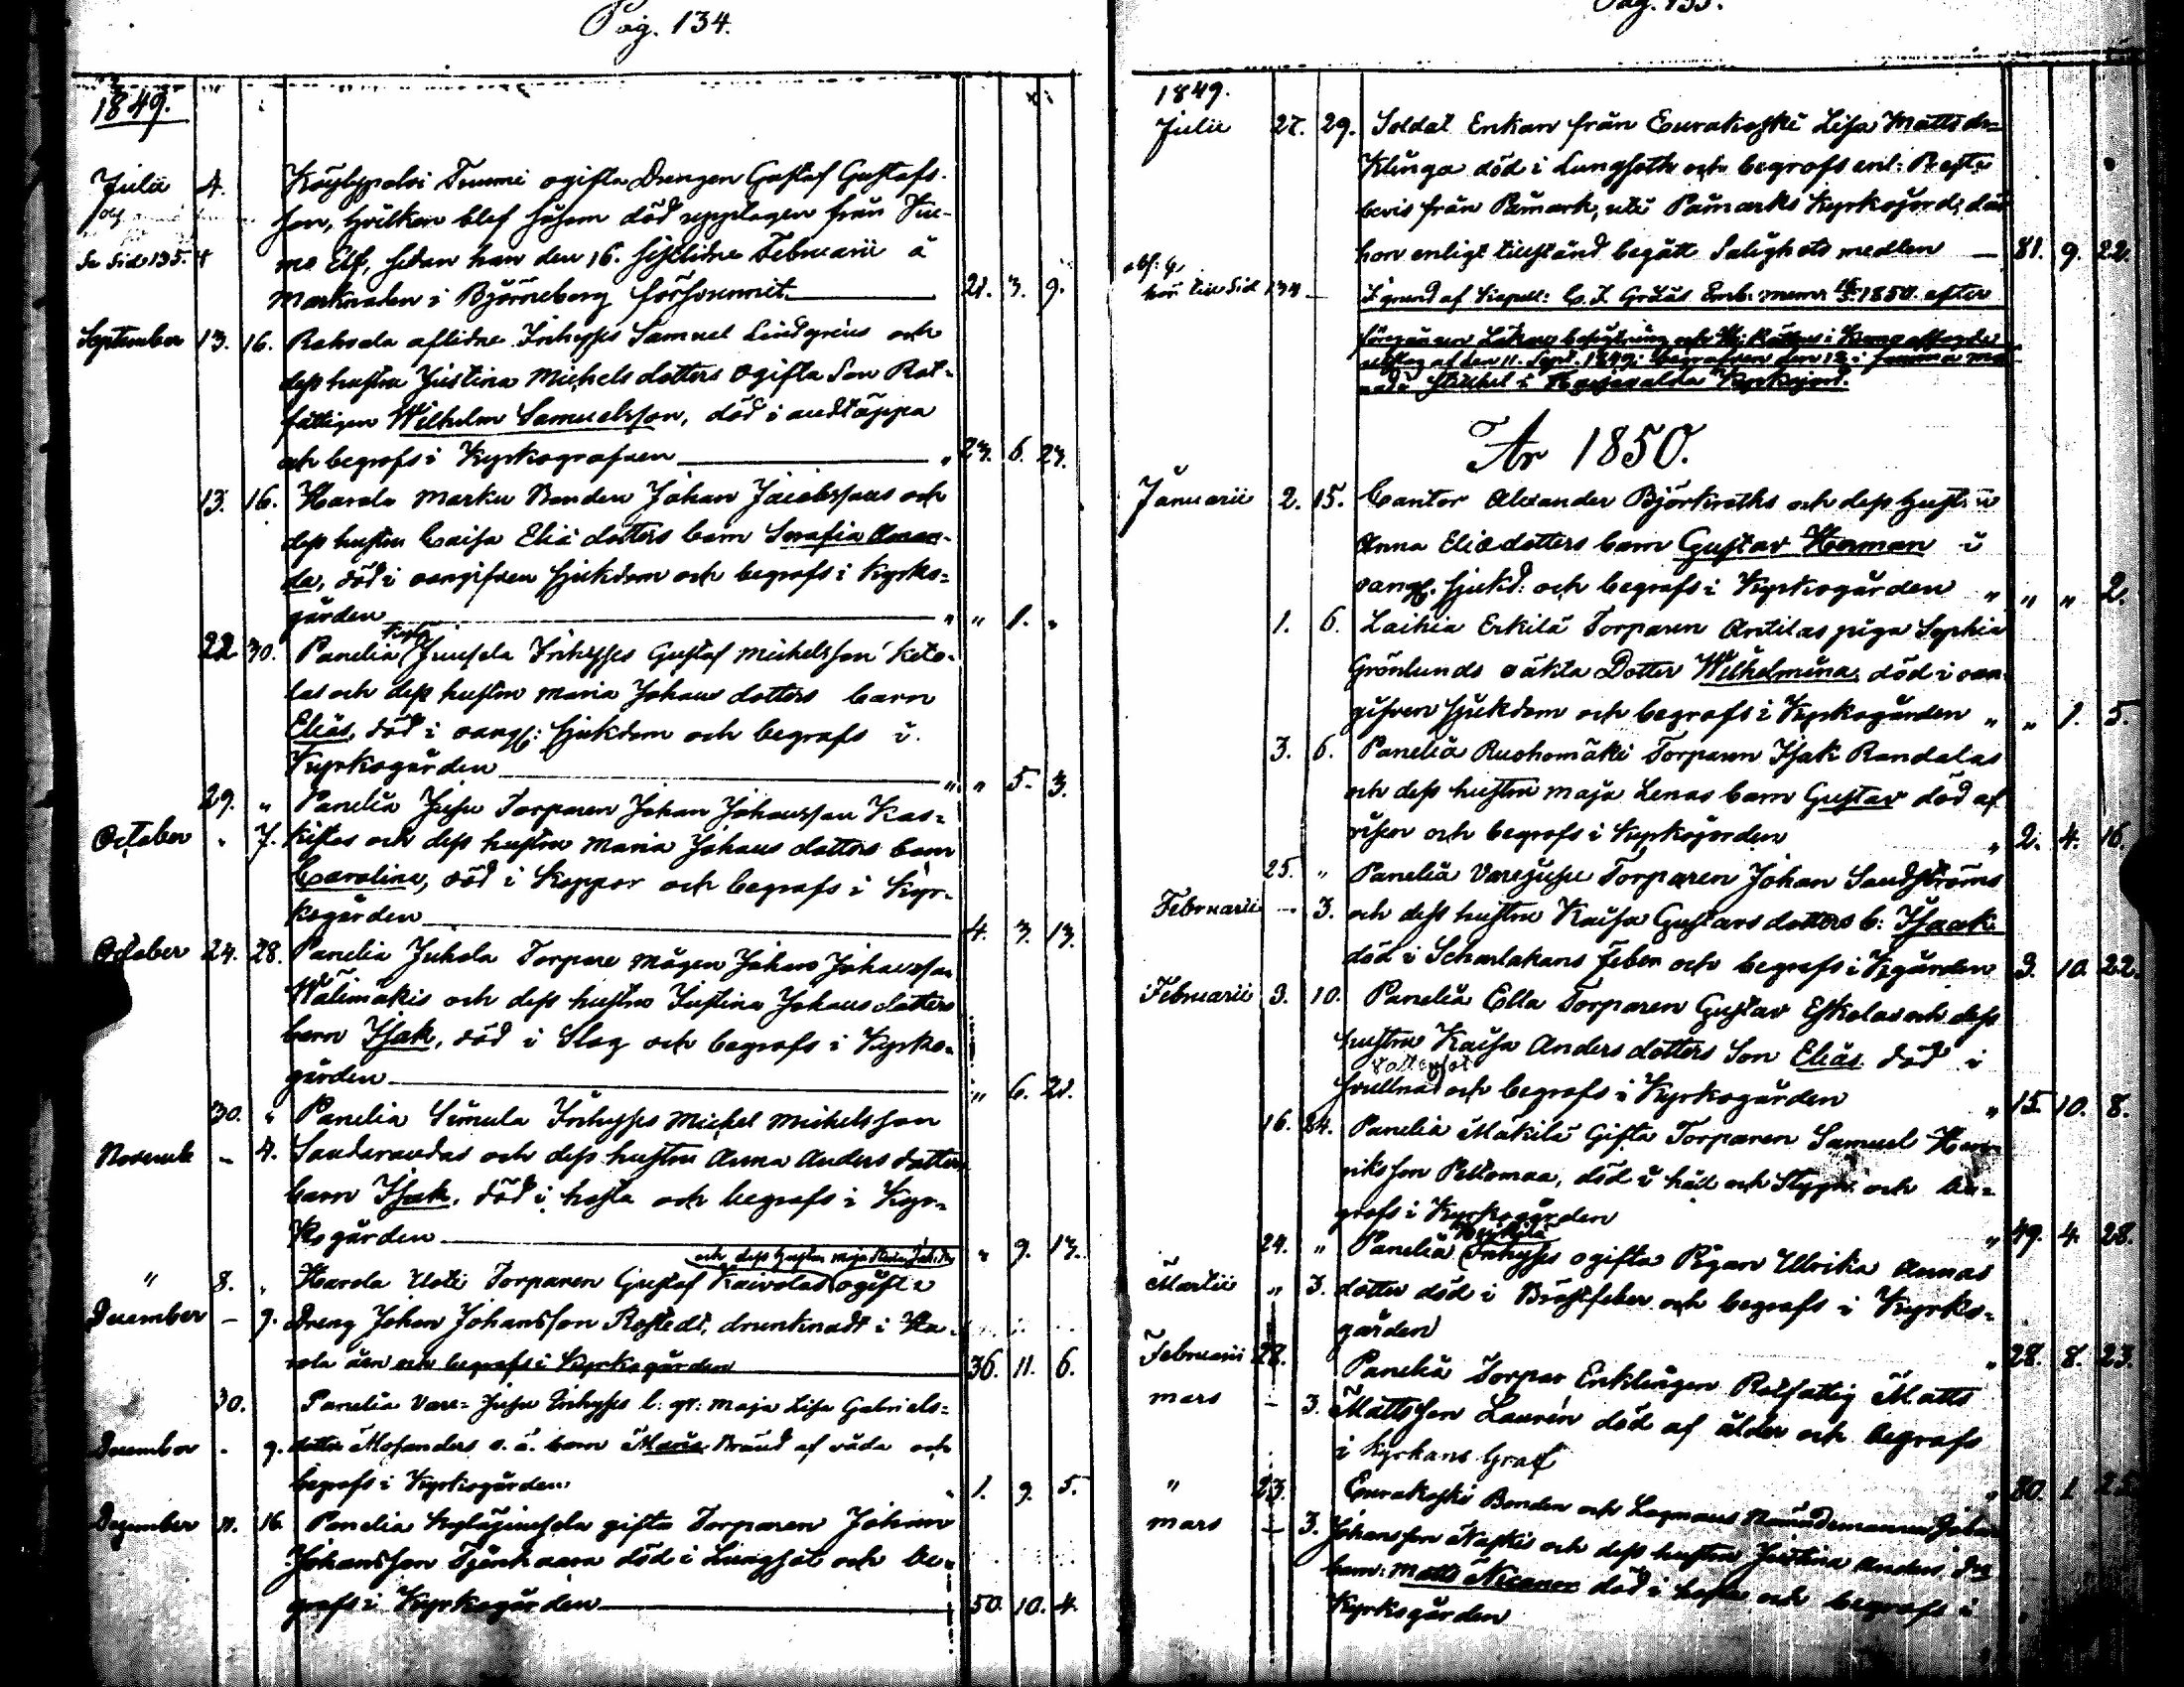 Pag. 134.
1849.
Julii 4. Köylypolvi Tuumi ogifta Drengen Gustaf Gustafs-
son, hvilken blef såsom död upptagen från Ku-
Se Sid 135. mo Elf, sedan han den 16. sistlidne Februarii å
Marknaden i Björneborg försvunnit. 21. 3. 9.
September 13. 16. Rahvala aflidne Inhyses Samuel Lindgréns och
dess hustru Justina Michels dotters ogifta Son Rot-
fattigen Wilhelm Samuelsson, död i andtäppa
och begrofs i Kyrkogrofven " 23. 6. 23.
13. 16. Harola Marku Bonden Johan Jacobssons och
dess hustru Caisa Eliæ dotters barn Serafia Aman-
da, död i oangifven sjukdom och begrofs i Kyrko-
gården " " 1. "
22. 30. Panelia Juusela Inhyses Gustaf Michelsson Keto-
las och dess hustru Maria Johans dotters barn
Elias, död i oangf: sjukdom och begrofs i
Kyrkogården " " 5. 3.
29. " Panelia Jusu Torparen Johan Johansson Kas-
October " 7. kistos och dess hustru Maria Johans dotters barn
Carolina, död i Koppor och begrofs i Kyr-
kogården 4. 3. 13.
October 24. 28. Panelia Juhola Torpare mågen Johan Johansson
Välimäkis och dess hustru Justina Johans dotters
barn Isak, död i Slag och begrofs i Kyrko-
gården " 6. 21.
30. " Panelia Simula Inhyses Michel Michelsson
Novemb – 4. Sandarandas och dess hustru Anna Anders dotters
barn Isak, död i hosta och begrofs i Kyr-
kogården " 9. 13.
och dess hustru Maja
" 8. " Harola Uoti Torparen Gustaf Kaivolas ogifte
December – 9. Dreng Johan Johansson Rostedt, drunknadt i Ha-
rola åen och begrofs i Kyrkogården 36. 11. 6.
30. Panelia Vare-Jusu Inhyses Maja Lisa Gabriels-
December – 9. dotter Mosanders o. ä. barn Maria Bränd af våda och
begrofs i Kyrkogården 1. 9. 5.
December 11. 16. Panelia Kyläjuusela gifta Torparen Johan
Johansson död i Lungsot och be-
grofs i Kyrkogården 50. 10. 4.
Pag. 135.
1849.
Julii 27. 29. Soldat Enkan från Eurakoski Lisa Matts dr
Klinga död i Lungsoth och begrofs enl: Prest
bevis från Påmark, uti Påmarks Kyrkojord, där
hon enligt tillstånd begått Salighets medlen 81. 9. 22.
hör till Sid 134 I grund af Kapell: C. J. Emb. memr 1850. efter
föregången Läkare besigtning och Hr. Rättens i Kumo
utslag af den 11. Sept. 1849; begrafven den 12 i samma må-
nad i stillhet i Kyrkojord.
År 1850.
Januarii 2. 15. Cantor Alexander Björkroths och dess hustru
Anna Eliædotters barn Gustav Herman i
oangf. sjukd: och begrofs i Kyrkogården " " " 2.
1. 6. Laihia Erkilä Torparen Antilas piga Sophia
Grönlunds oäkta Dotter Wilhelmina, död i oan-
gifven sjukdom och begrofs i Kyrkogården " " 1. 5.
3. 6. Panelia Ruohomäki Torparen Isak Randalas
och dess hustru Maja Lenas barn Gustav död af
risen och begrofs i Kyrkojorden " 2. 4. 16.
25. " Panelia Varejusu Torparen Johan Sandströms
Februarii – 3. och dess hustru Kaisa Gustavs dotters b: Isaak
död i Scharlakans Feber och begrofs i Kgården 3. 10. 22.
Februarii 3. 10. Panelia Ella Torparen Gustav Eskolas och dess
hustru Kaisa Anders dotters Son Elias död i
Vattusot
svullnad och begrofs i Kyrkogården " 15. 10. 8.
16. 24. Panelia Mäkilä Gifta Torparen Samuel Hen-
riksson Peltomaa, död i håll och Stygn och be-
grofs i Kyrkogården " 49. 4. 28.
Heikilä
24. " Panelia Inhyses ogifta Pigan Ulrika Annas
Martii " 3. dotter död i Bröstfeber och begrofs i Kyrko-
gården " 28. 8. 23.
Februarii 28. Panelia Torpar Enklingen Rotfattig Matts
mars – 3. Mattsson Laurén död af ålder och begrofs
i Kyrkans Graf " 80. 1 25
" 23. Eurakoski Bonden och Lagmans Nämndemannen Johan
mars – 3. Johansson och dess hustru Justina Anders dr
barn: Matts Nicanor död i hosta och begrofs i
Kyrkogården